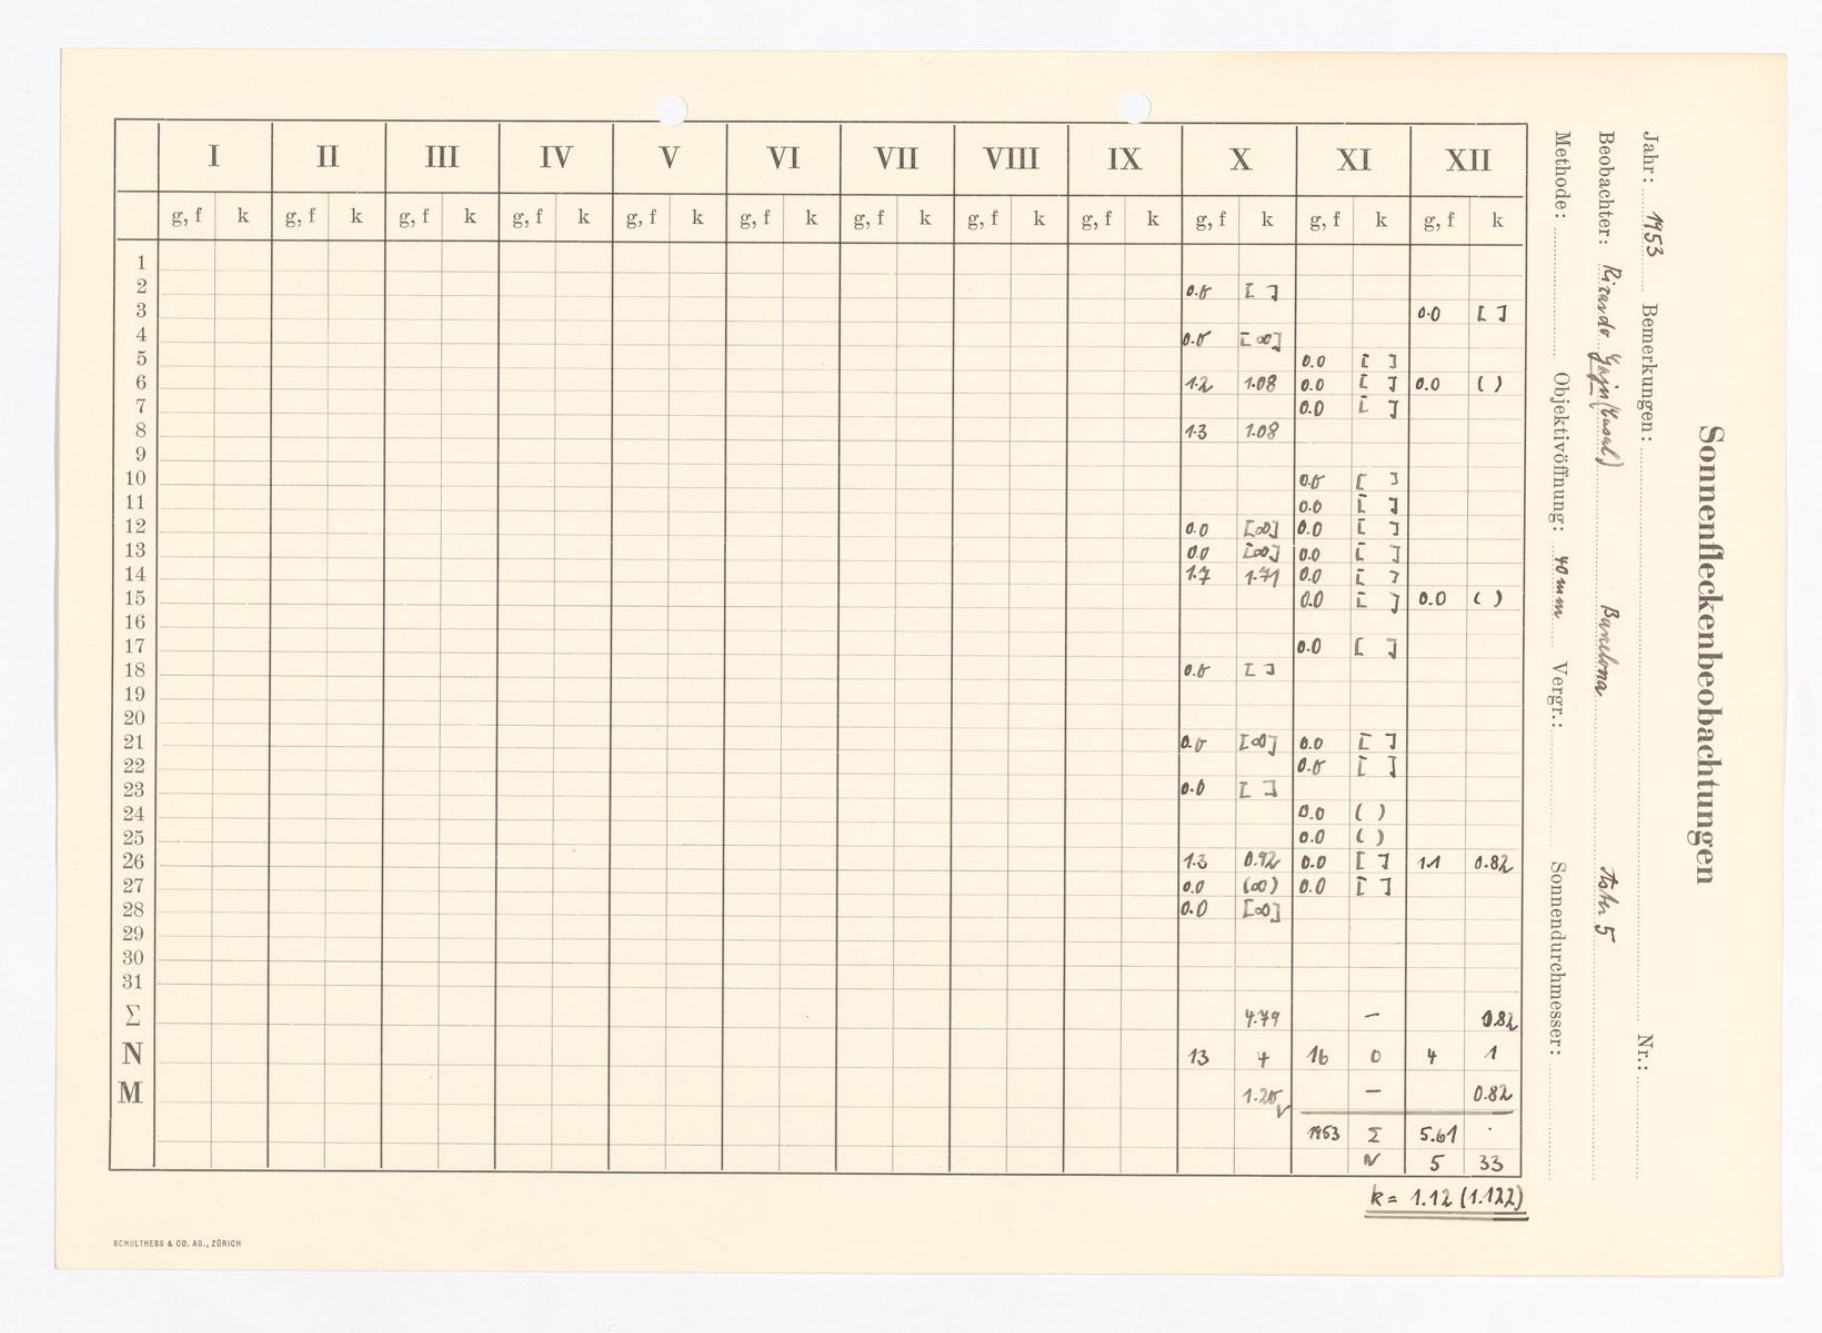 Sonnenfleckenbeobachtungen
Jahr: 1953 Bemerkungen: Nr.:
Beobachter: Ricardo Barcelona 5
Methode: Objektivöffnung: 40 mm Vergr.: Sonnendurchmesser:
I II III IV V VI VII VIII IX X XI XII
g, f k g, f k g, f k g, f k g, f k g, f k g, f k g, f k g, f k g, f k g, f k g, f k
1
2 0.0 [ ]
3 0.0 [ ]
4 0.0 [∞]
5 0.0 [ ]
6 1.2 1.08 0.0 [ ] 0.0 ( )
7 0.0 [ ]
8 1.3 1.08
9
10 0.0 [ ]
11 0.0 [ ]
12 0.0 [∞] 0.0 [ ]
13 0.0 [∞] 0.0 [ ]
14 1.7 1.71 0.0 [ ]
15 0.0 [ ] 0.0 ( )
16
17 0.0 [ ]
18 0.0 [ ]
19
20
21 0.0 [∞] 0.0 [ ]
22 0.0 [ ]
23 0.0 [ ]
24 0.0 ( )
25 0.0 ( )
26 1.3 0.92 0.0 [ ] 1.1 0.82
27 0.0 (∞) 0.0 [ ]
28 0.0 [∞]
29
30
31
Σ 4.79 — 0.82
N 13 4 16 0 4 1
M 1.20 — 0.82
1953 Σ 5.61
N 5 33
k = 1.12 (1.122)
SCHULTHESS & CO. AG., ZÜRICH